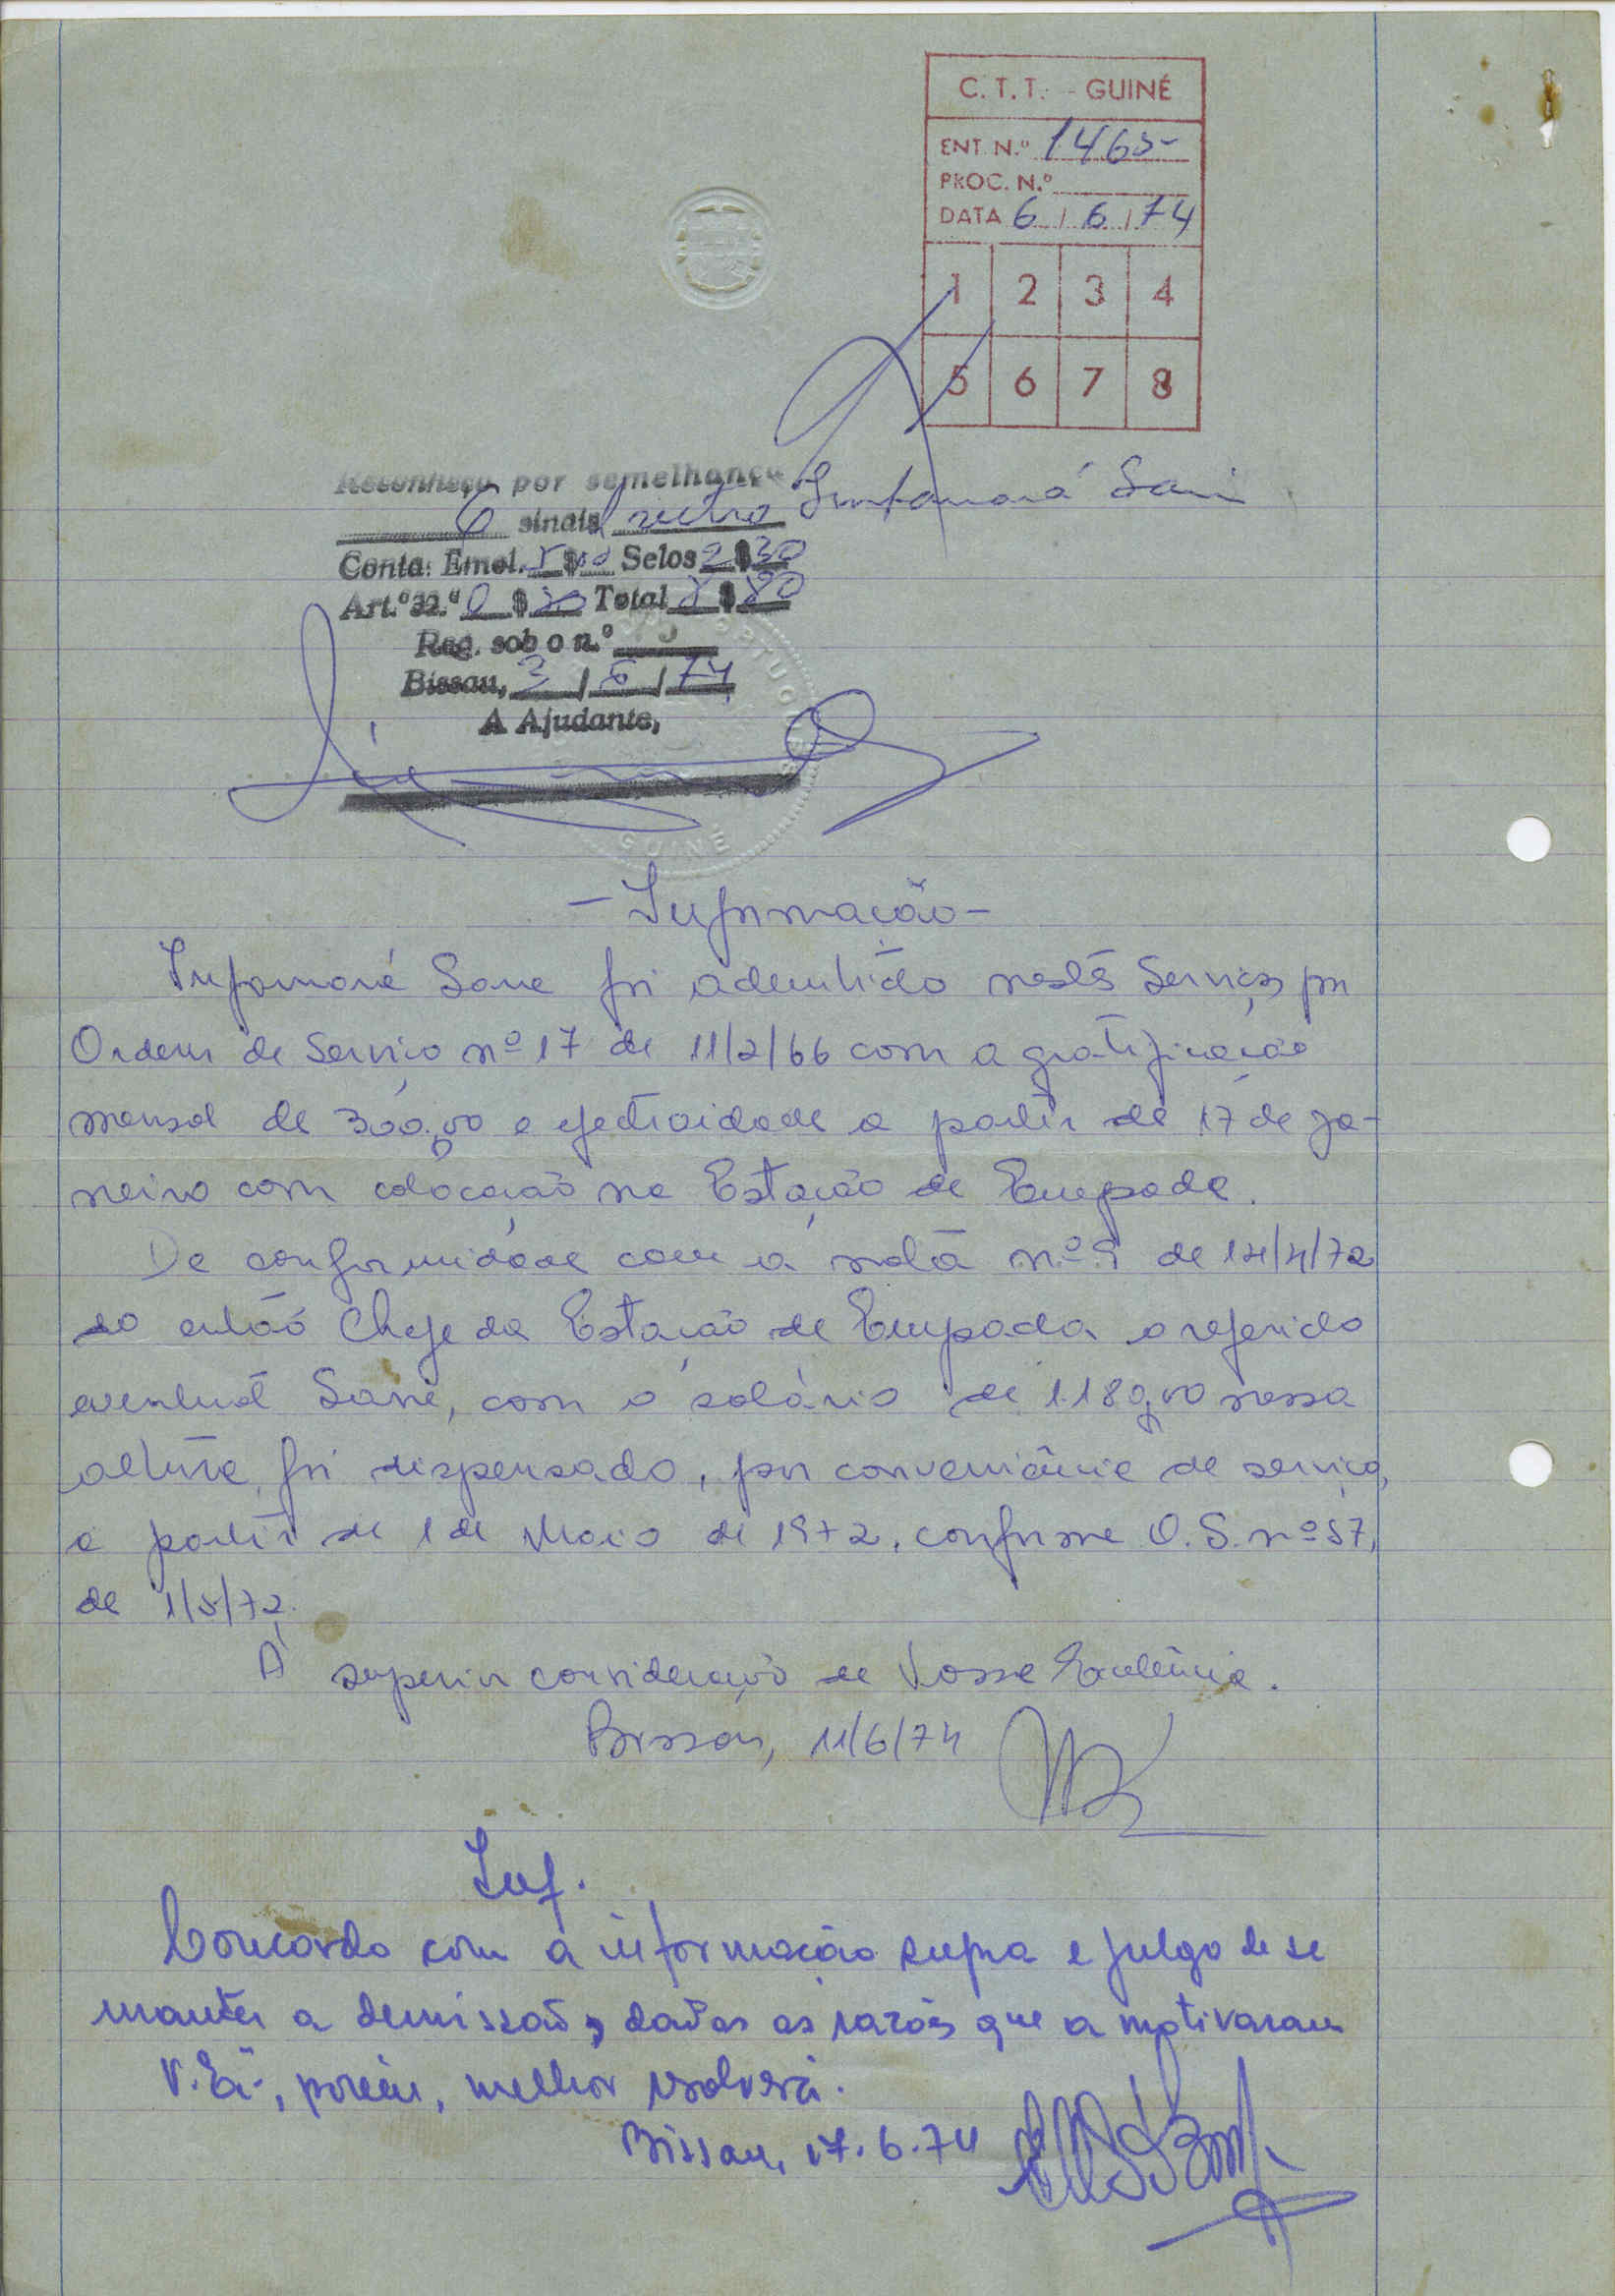 C.T.T. - GUINÉ
ENT. N.º 1465-
PROC. N.º
DATA 6 / 6 / 74
1 2 3 4
5 6 7 8
Reconheço por semelhança
O sinal rectro Infamará Sani
Conta: Emol. $ Selos 2$30
Art.º 32.º 0$ Total $80
Reg. sob o n.º
Bissau, 3 / 6 / 74
A Ajudante,
PORTUGUESA
GUINÉ
- Informação -
Infamará Sane foi admitido nestes Serviços por
Ordem de Serviço nº 17 de 11/2/66 com a gratificação
mensal de 300,00 e efectividade a partir de 17 de Ja-
neiro com colocação na Estação de Empada.
De conformidade com a nota nº 9 de 14/4/72
do então Chefe da Estação de Empada o referido
eventual Sane, com o salário de 1.180,00 nessa
altura, foi dispensado, por conveniência de serviço,
a partir de 1 de Maio de 1972, conforme O.S. nº 57,
de 1/5/72.
À superior consideração de Vossa Excelência.
Bissau, 11/6/74
Inf.
Concordo com a informação supra e julgo de se
manter a demissão, dadas as razões que a motivaram
V. Exª, porém, melhor resolverá.
Bissau, 17.6.74